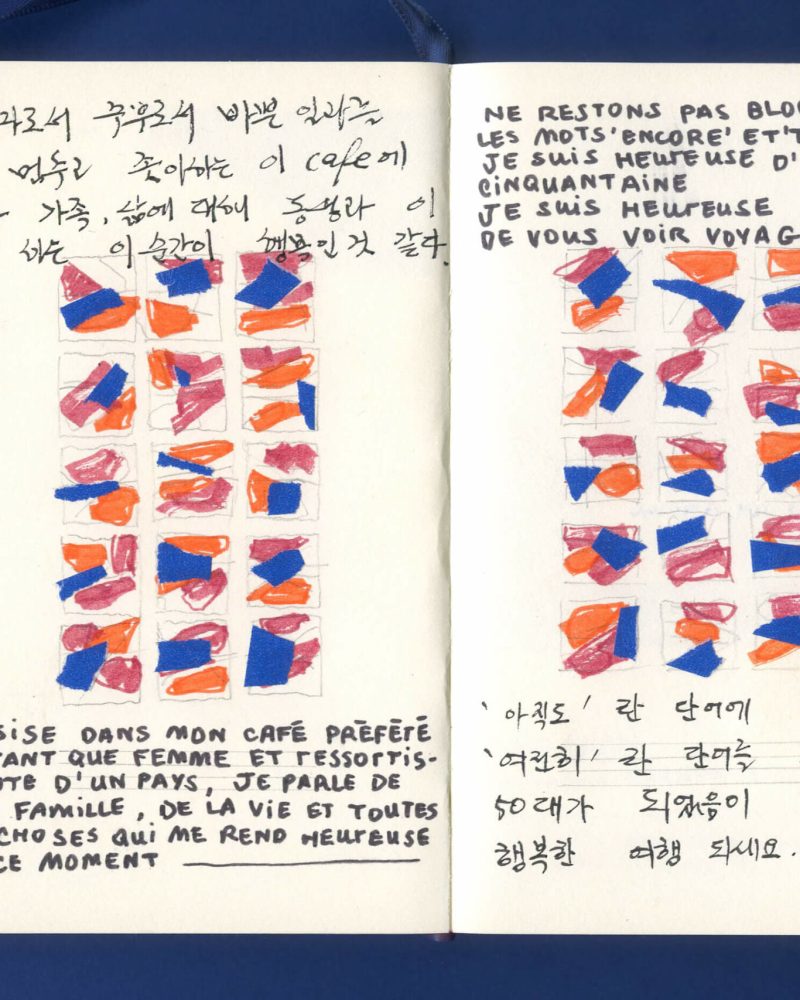 자로서 주부로서 바쁜 일과를
멈추고 좋아하는 이 cafe에
가족, 삶에 대해 동생과 이
하는 이 순간이 행복인것 같다.
SISE DANS MON CAFÉ PRÉFÉRÉ
TANT QUE FEMME ET RESSORTIS-
NTE D'UN PAYS, JE PARLE DE
FAMILLE, DE LA VIE ET TOUTES
CHOSES QUI ME REND HEUREUSE
CE MOMENT
NE RESTONS PAS BLO
LES MOTS 'ENCORE' ET 'T
JE SUIS HEUREUSE D'
CINQUANTAINE
JE SUIS HEUREUSE
DE VOUS VOIR VOYAG
'아직도' 란 단어에
'여전히' 란 단어를
50대가 되었음이
행복한 여행 되세요.